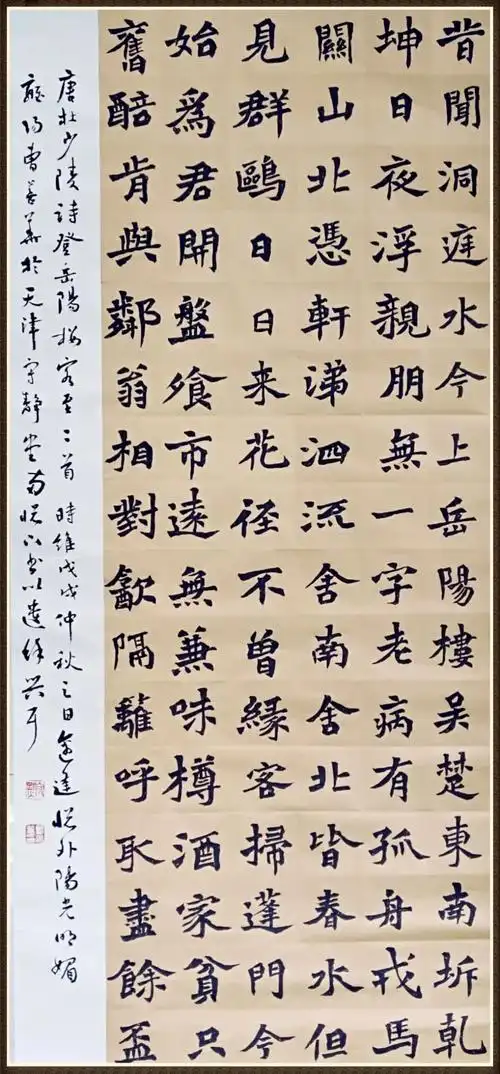 昔聞洞庭水今上岳陽樓吴楚東南坼乾
坤日夜浮親朋無一字老病有孤舟戎馬
關山北憑軒涕泗流舍南舍北皆春水但
見群鷗日日来花径不曾緣客掃蓬門今
始為君開盤飧市遠無兼味樽酒家貧只
舊醅肯與鄰翁相對㱃隔籬呼取盡餘盃
唐杜少陵詩登岳陽楼客至二首 時維戊戌仲秋之日 牕外陽光明媚
曹善華於天津宁靜堂南牕下书以遣餘兴耳